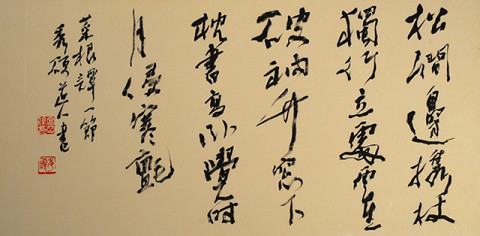 松澗邊携杖
獨行立處雲生
破衲竹窓下
枕書高臥覺時
月侵寒氈
菜根譚一節
秀道人書